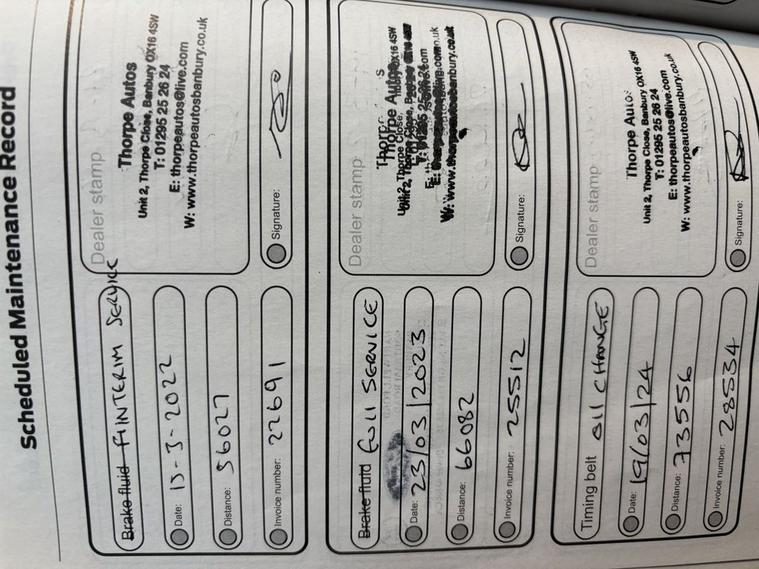 Scheduled Maintenance Record
Brake fluid INTERIM SERVICE
Date: 15-3-2022
Distance: 56027
Invoice number: 22691
Dealer stamp
Thorpe Autos
Unit 2, Thorpe Close, Banbury OX16 4SW
T: 01295 25 26 24
E: thorpeautos@live.com
W: www.thorpeautosbanbury.co.uk
Signature:
Brake fluid Full SERVICE
Date: 23/03/2023
Distance: 66082
Invoice number: 25512
Dealer stamp
Thorpe Autos
Unit 2, Thorpe Close, OX16 4SW
T: 01295 25 26 24
W: www.thorpeautosbanbury.co.uk
Signature:
Timing belt oil CHANGE
Date: 19/03/24
Distance: 73556
Invoice number: 28534
Dealer stamp
Thorpe Autos
Unit 2, Thorpe Close, Banbury OX16 4SW
T: 01295 25 26 24
E: thorpeautos@live.com
W: www.thorpeautosbanbury.co.uk
Signature: